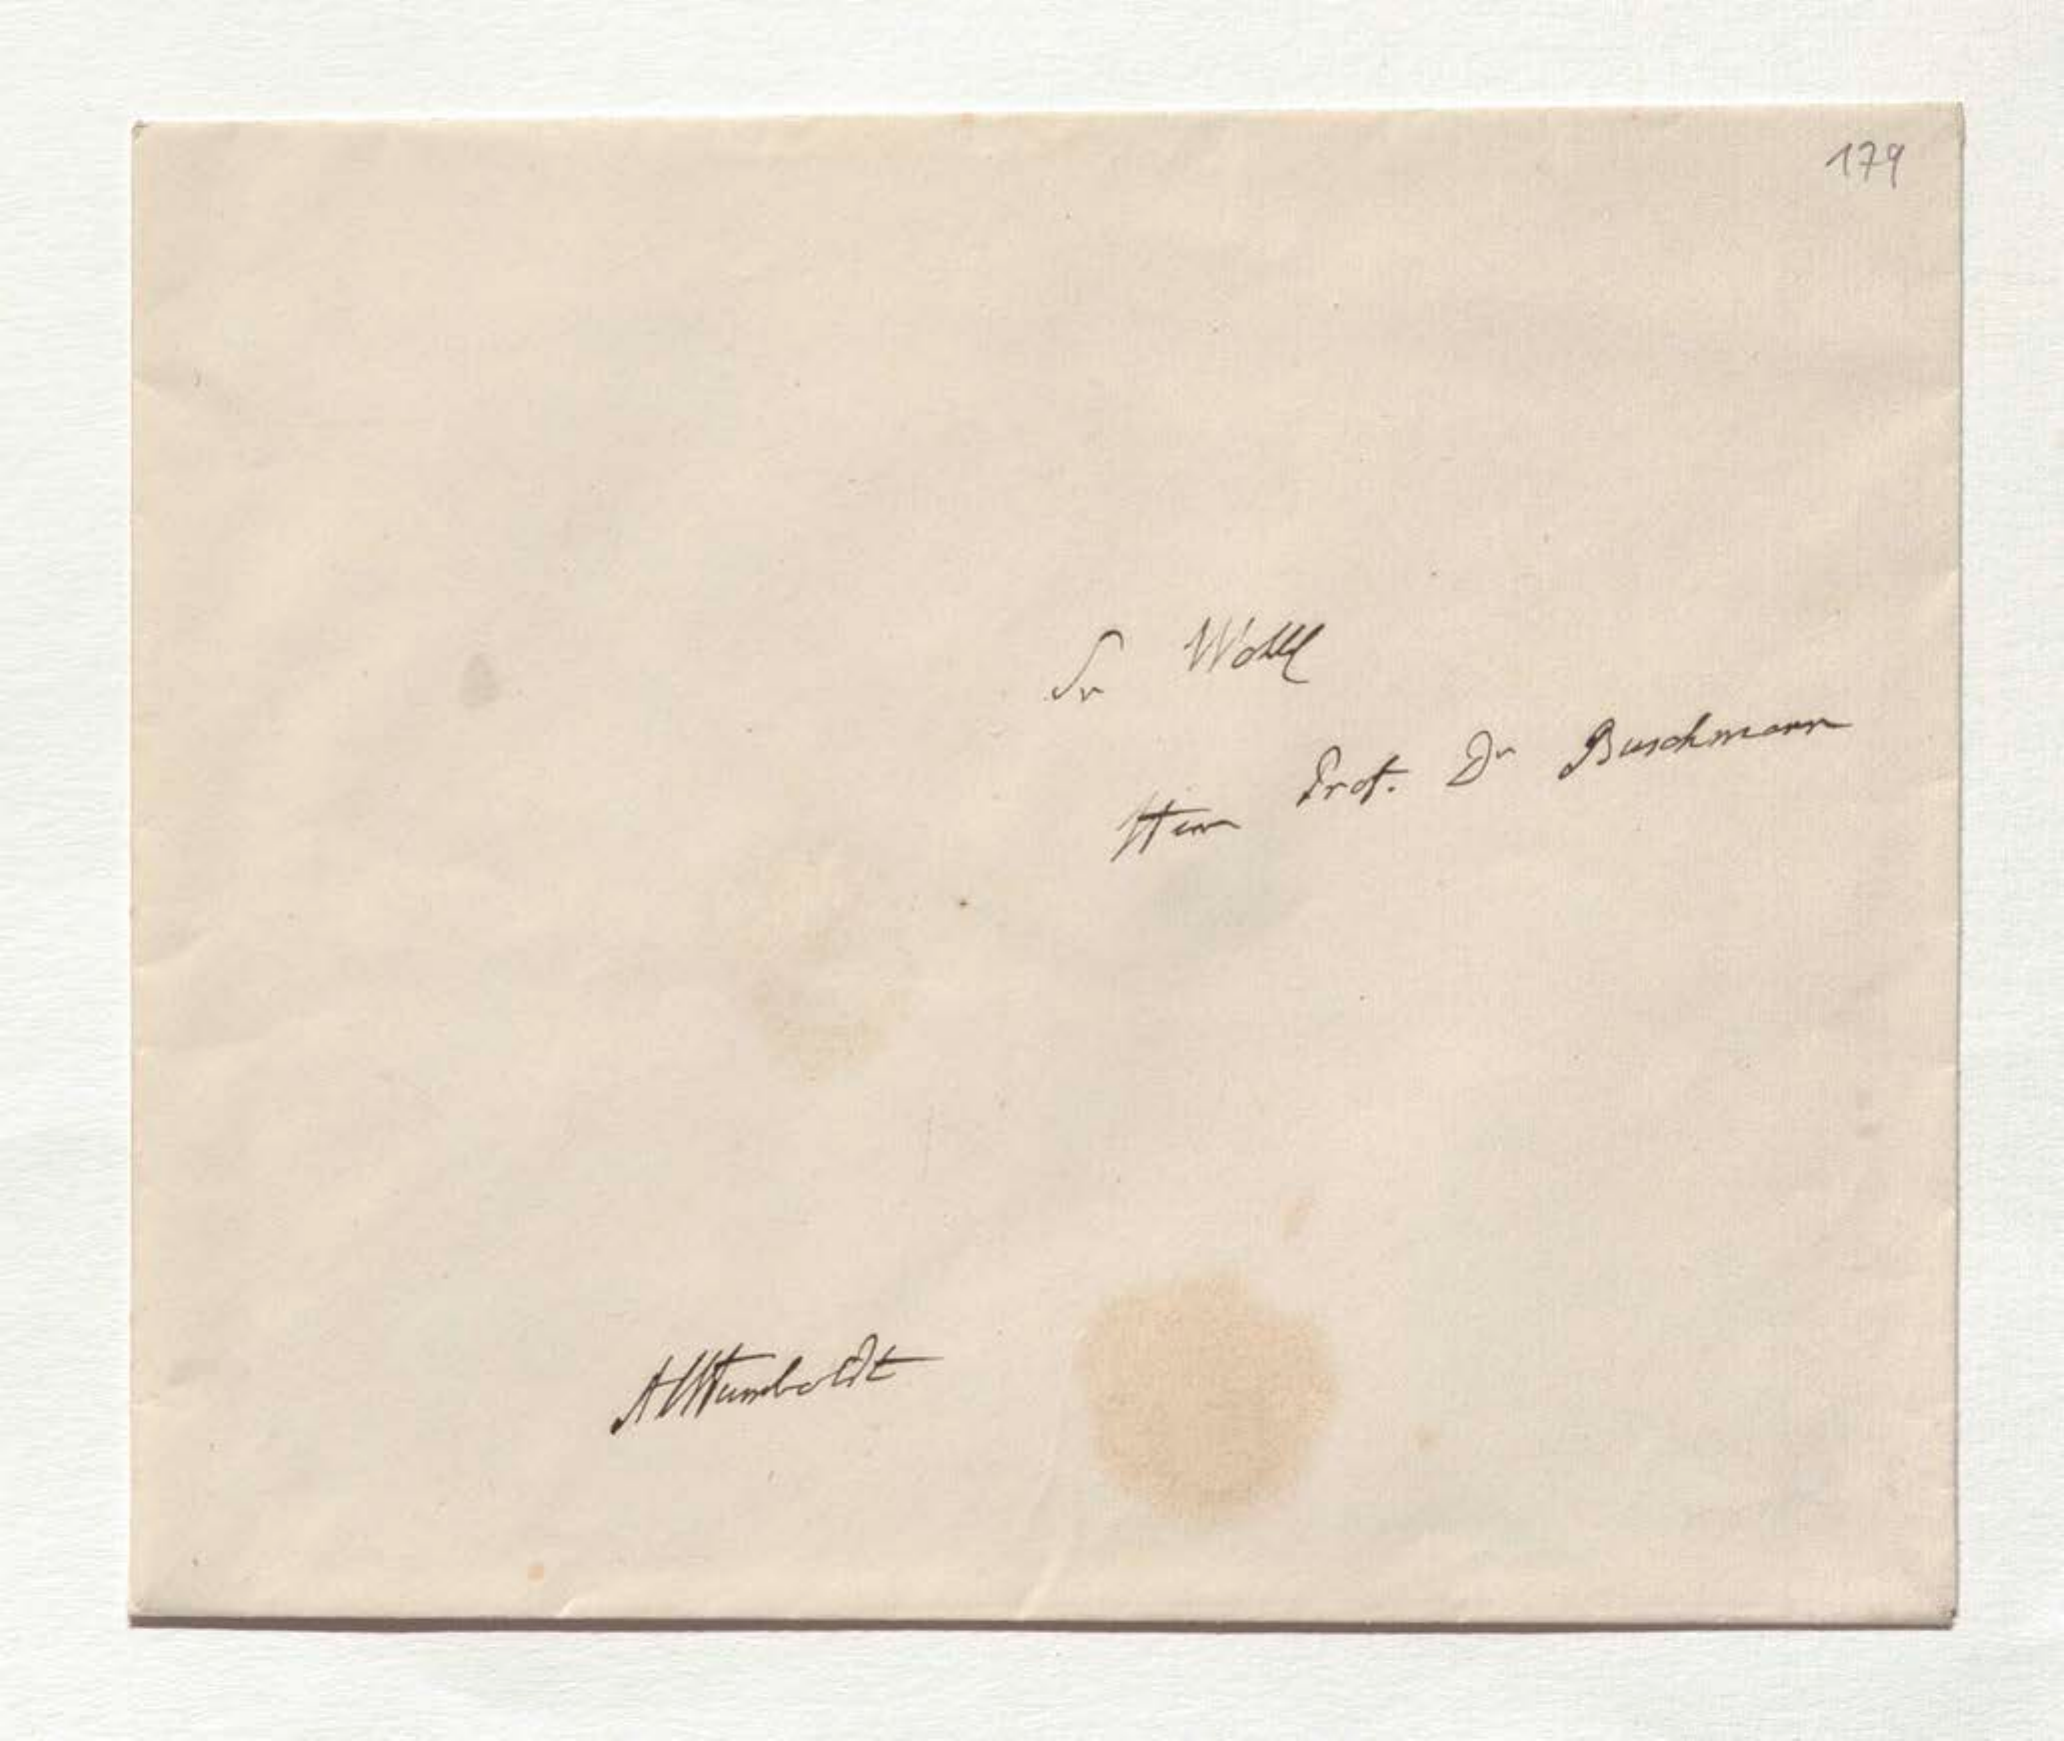 179
Sr Wohll
Herrn Prof. Dr Buschmann
AlHumboldt